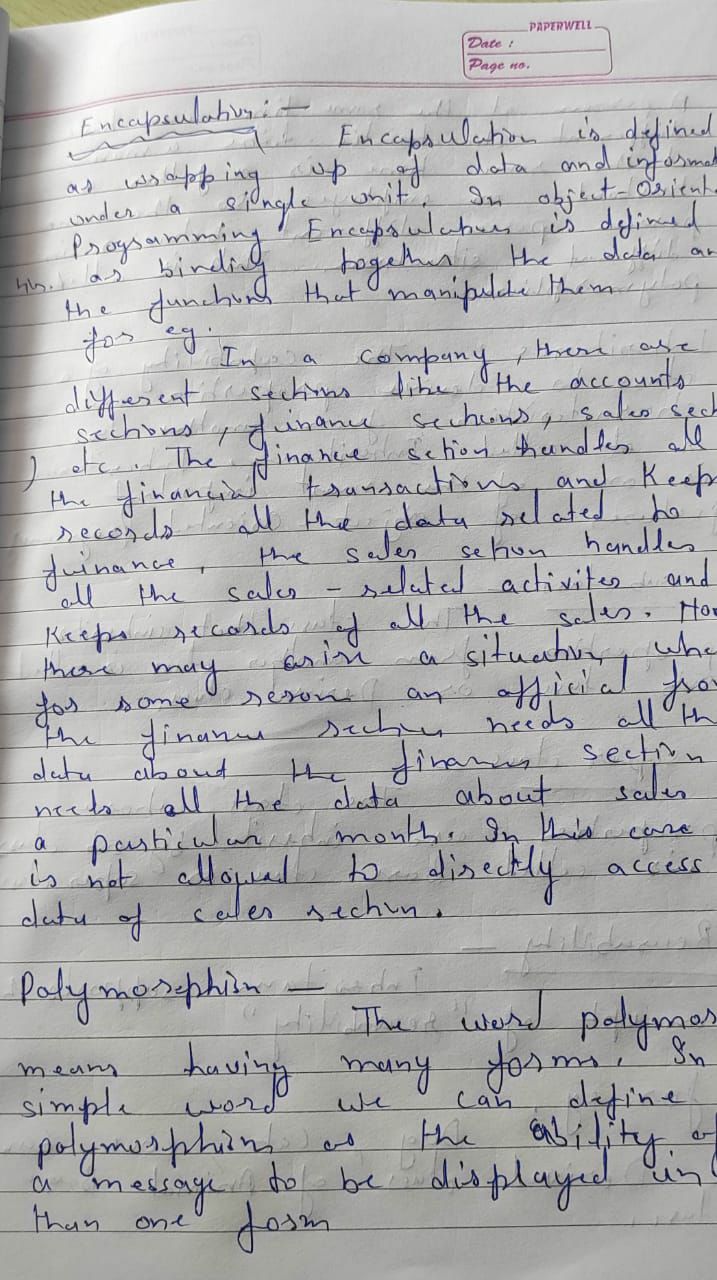 PAPERWELL
Date :
Page no.
Encapsulation : -
Encapsulation is defined
as wrapping up of data and informat
under a single unit. In object-Orient
Programming Encapsulation is defined
as binding together the data an
the functions that manipulate them
for eg.
In a company, there are
different sections like the accounts
sections, finance sections, sales sect
etc. The finance section handles all
the financial transactions and Keeps
records all the data related to
finance, the sales setion handles
all the sales - related activites and
Keeps records of all the sales. How
there may arise a situation, whe
for some reson an official fro
the finance section needs all th
data about the finance section
needs all the data about sales
a particular month. In this case
is not allowed to directly access
data of sales section.
Polymorphism -
The word polymor
means having many forms. In
simple word we can define
polymorphism as the ability of
a message to be displayed in
than one form